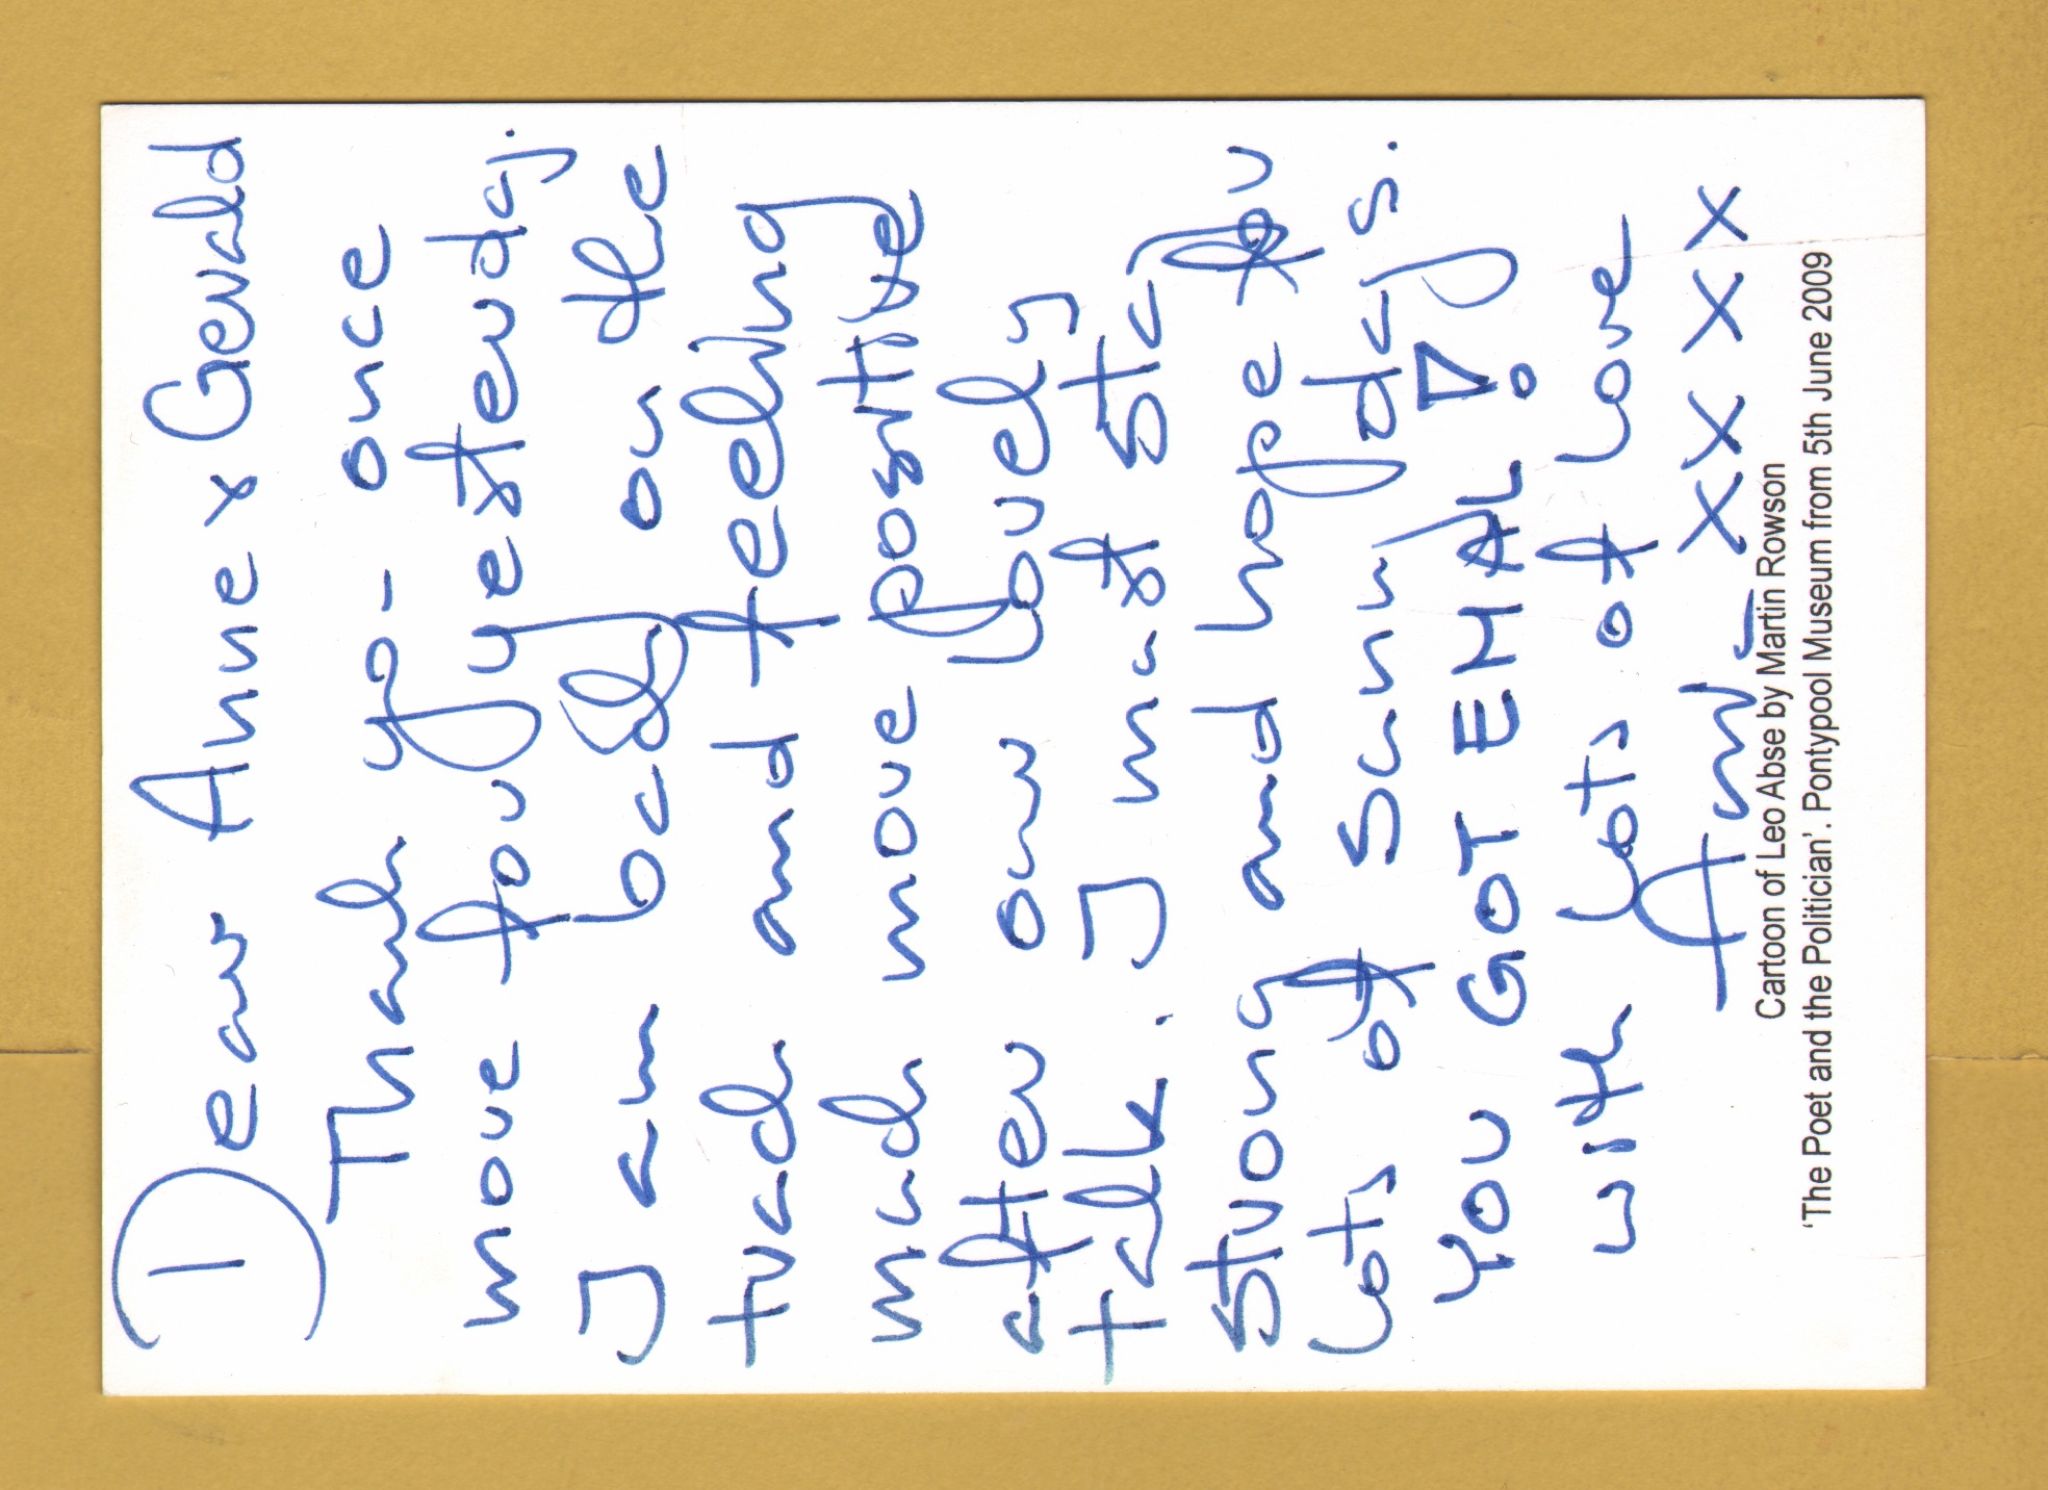 Dear Anne & Gerald
Thank you - once
more for yesterday.
I am back on the
track and feeling
much more positive
after our lovely
talk. I must stay
strong and hope for
lots of sunny days.
YOU GOT EMAL !
with lots of love
Ani xxxx
Cartoon of Leo Abse by Martin Rowson
'The Poet and the Politician'. Pontypool Museum from 5th June 2009